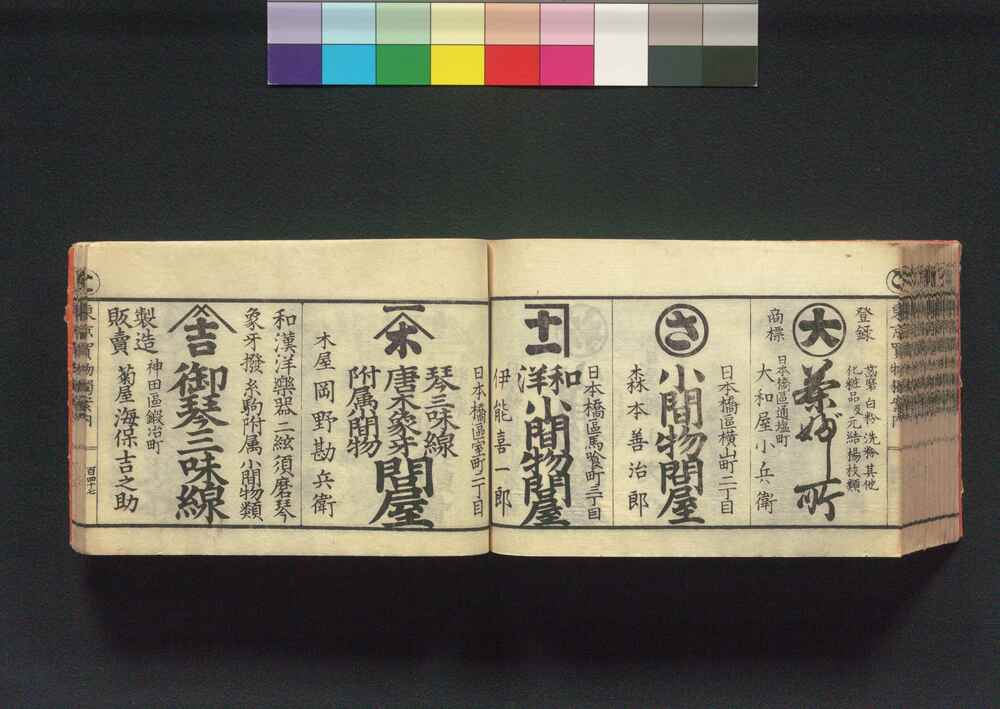 登録
商標
大
白粉洗粉其他
化粧品及元結楊枝類
日本橋區通塩町
大和屋小兵衛
日本橋區横山町二丁目
さ
小間物問屋
森本善治郎
日本橋區馬喰町三丁目
十一
和洋小間物問屋
伊能喜一郎
日本橋區室町二丁目
木
琴三味線
唐木象牙
附属小間物
問屋
木屋岡野勘兵衛
和漢洋樂器二絃須磨琴
象牙撥糸駒附属小間物類
吉
御琴三味線
神田區鍛冶町
製造
販賣
菊屋海保吉之助
東京買物獨案内
百四十七